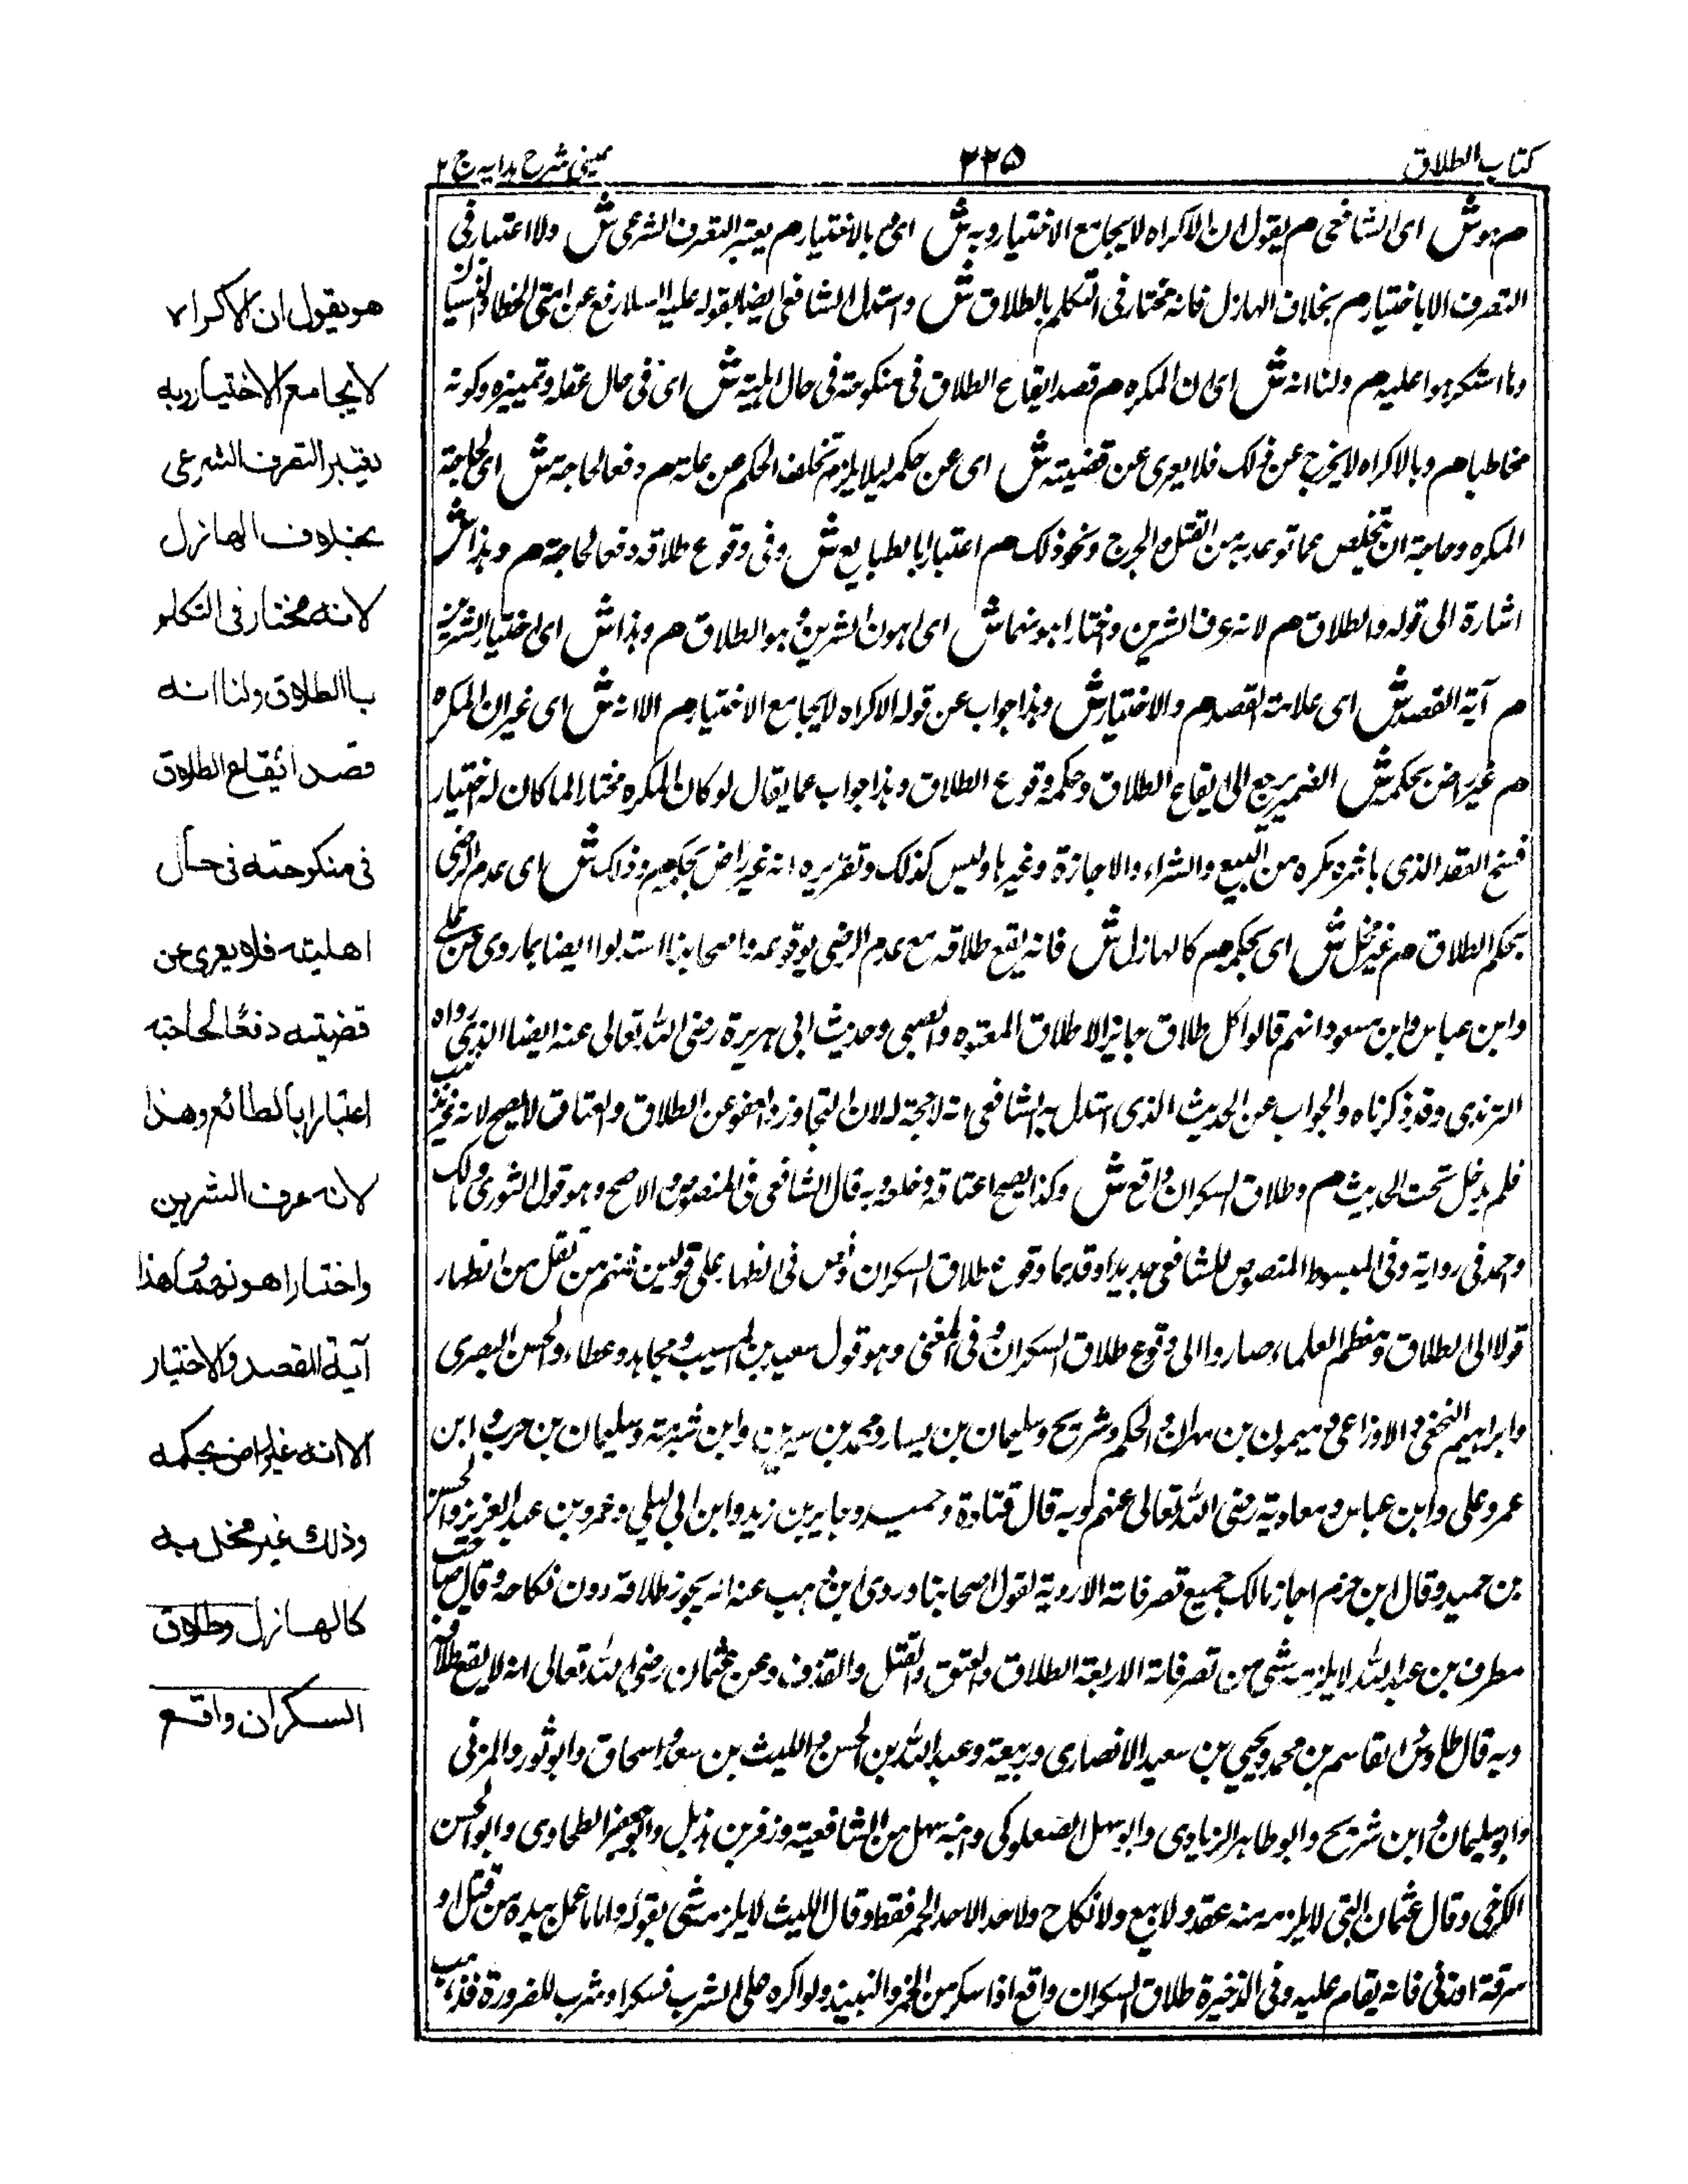 كتاب الطلاق
٣٢٥
عینی شرح ہدایہ ج ٢
م ہو ش ای الشافعی م یقول ان الاکراہ لا یجامع الاختیار وبہ ش ای م بالاختیار م یعتبر التصرف الشرعی ش ولا اعتبار فی
التصرف الا باختیار م بخلاف الهازل فانہ مختار فی التکلم بالطلاق ش واستدل الشافعی ایضا بقولہ علیہ السلام رفع عن امتی الخطاء والنسیان
وما استکرہوا علیہ م ولنا انہ ش ای ان المکرہ م قصد ایقاع الطلاق فی منکوحتہ فی حال اہلیتہ ش ای فی حال عقلہ وتمییزہ وکونہ
مخاطبا م وبالاکراہ لا یخرج عن ذلک فلا یعری عن قضیتہ ش ای عن حکمہ لیلا یلزم تخلف الحکم عن علتہ م دفعا لحاجتہ ش ای لحاجة
المکرہ وحاجتہ ان یتخلص عما توعد بہ من القتل والجرح ونحو ذلک م اعتبارا بالطایع ش وفی وقوع طلاقہ دفعا لحاجتہ م وہذا ش
اشارة الی قولہ والطلاق م لانہ عرف الشرین واختار اہونہما ش ای اہون الشرین وہو الطلاق م وہذا ش ای اختیار الشرین
م آیة القصد ش ای علامة القصد م والاختیار ش وہذا جواب عن قولہ الاکراہ لا یجامع الاختیار م الا انہ ش ای غیر ان المکرہ
م غیر راض بحکمہ ش الضمیر یرجع الی ایقاع الطلاق وحکمہ وقوع الطلاق وہذا جواب عما یقال لو کان المکرہ مختارا لما کان لہ اختیار
فسخ العقد الذی باشرہ مکرہ من البیع والشراء والاجازة وغیرہا ولیس کذلک وتقریرہ انہ غیر راض بحکمہ م وذلک ش ای عدم الرضی
بحکم الطلاق م غیر مخل ش ای بحکمہ م کالهازل ش فانہ یقع طلاقہ مع عدم الرضی بوقوعہ واصحابنا استدلوا ایضا بما روی عن علی
وابن عباس وابن مسعود انہم قالوا کل طلاق جایز الا طلاق المعتوہ والصبی وحدیث ابی ہریرة رضی اللہ تعالی عنہ ایضا الذی رواہ
الترمذی وقد ذکرناہ والجواب عن الحدیث الذی استدل بہ الشافعی انہ لا حجة لہ لان التجاوز والعفو عن الطلاق والعتاق لا یصح لانہ غیر ذنب
فلم یدخل تحت الحدیث م وطلاق السکران واقع ش وکذا یصح اعتاقہ وخلعہ وبہ قال الشافعی فی المنصوص الاصح وہو قول الثوری ومالک
واحمد فی روایة وفی المبسوط المنصوص للشافعی جدیدا وقدیما وقوع طلاق السکران ونص فی الظهار علی قولین فمنہم من نقل من الظهار
قولا الی الطلاق ومعظم العلماء صاروا الی وقوع طلاق السکران وفی المغنی وہو قول سعید بن المسیب ومجاہد وعطاء والحسن البصری
وابراہیم النخعی والاوزاعی ومیمون بن مہران والحکم وشریح وسلیمان بن یسار ومحمد بن سیرین وابن شبرمة وسلیمان بن حرب وابن
عمر وعلی وابن عباس ومعاویة رضی اللہ تعالی عنہم وبہ قال قتادة وحمید وجابر بن زید وابن ابی لیلی وعمر بن عبد العزیز والحسن
بن حمید وقال ابن حزم اجاز مالک جمیع تصرفاتہ الا الردة لقول اصحابنا وروی ابن وہب عنہ انہ یجوز طلاقہ دون نکاحہ وقال صاحبہ
مطرف بن عبد اللہ لا یلزمہ شی من تصرفاتہ الا اربعة الطلاق والعتق والقتل والقذف وعن عثمان رضی اللہ تعالی انہ لا یقع طلاقہ
وبہ قال طاؤس والقاسم بن محمد ویحیی بن سعید الانصاری وربیعة وعبد اللہ بن الحسن واللیث بن سعد واسحاق وابو ثور والمزنی
وابو سلیمان وابن شریح وابو طاہر الزیادی وابو سهل الصعلوکی وابنہ سهل من الشافعیة وزفر بن ہذیل وابو جعفر الطحاوی وابو الحسن
الکرخی وقال عثمان البتی لا یلزمہ منہ عقد ولا بیع ولا نکاح ولا حد الا حد الخمر فقط وقال اللیث لا یلزمہ شی بقولہ واما ما عمل بیدہ من قتل او
سرقة او زنی فانہ یقام علیہ وفی الذخیرة طلاق السکران واقع اذا سکر من الخمر والنبیذ ولو اکرہ علی الشرب فسکر او شرب للضرورة فذہب
هو يقول ان الاكراه
لا يجامع الاختيار وبه
يعتبر التصرف الشرعي
بخلاف الهازل
لانه مختار في التكلم
بالطلاق ولنا انه
قصد ايقاع الطلاق
في منكوحته في حال
اهليته فلا يعرى عن
قضيته دفعًا لحاجته
اعتبارا بالطائع وهذا
لانه عرف الشرين
واختار اهونهما وهذا
آية القصد والاختيار
الا انه غير راض بحكمه
وذلك غير مخل به
كالهازل وطلاق
السكران واقع